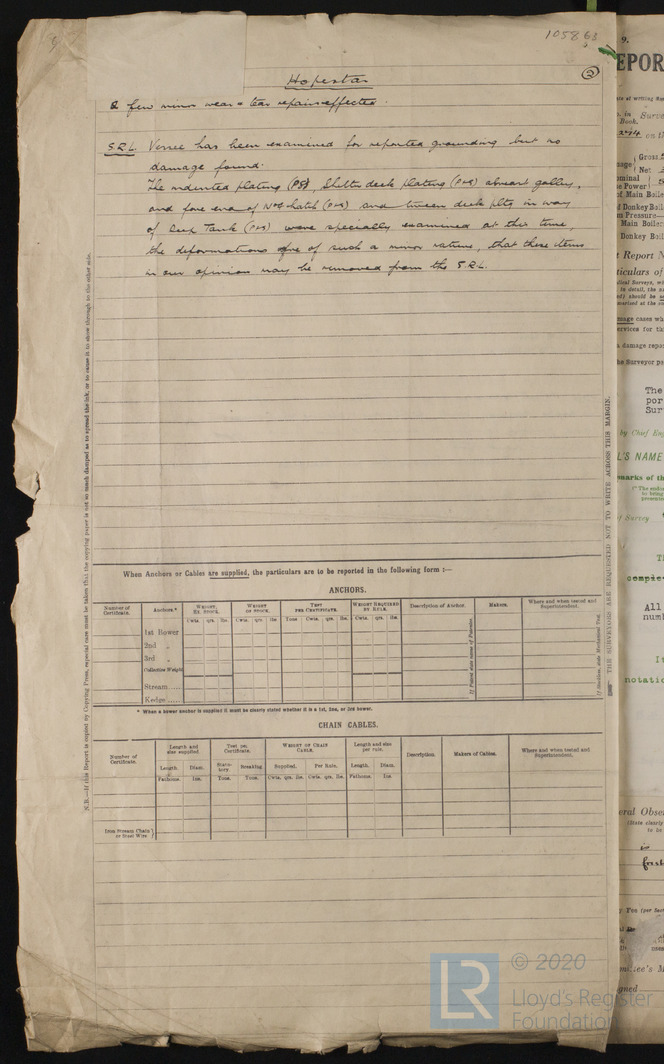 105863
Hopestar
2
& few minor wear & tear repairs effected.
S.R.L. Vessel has been examined for reported grounding but no
damage found.
The indented plating (PS), Shelter deck plating (P&S) abreast galley,
and fore end of No4 hatch (P&S) and tween deck pltg in way
of Deep Tank (P&S) were specially examined at this time,
the deformations are of such a minor nature, that these items
in our opinion may be removed from the S.R.L.
N.B.—If this Report is copied by Copying Press, especial care must be taken that the copying paper is not so much damped as to spread the ink, or to cause it to show through to the other side.
THE SURVEYORS ARE REQUESTED NOT TO WRITE ACROSS THIS MARGIN.
When Anchors or Cables are supplied, the particulars are to be reported in the following form :—
ANCHORS.
Number of Certificate. Anchors.* Weight Ex Stock. Weight of Stock. Test per Certificate. Weight Required by Rule. Description of Anchor. Makers. Where and when tested and Superintendent.
Cwts. qrs. lbs. Cwts. qrs. lbs. Tons Cwts. qrs. lbs. Cwts. qrs. lbs.
1st Bower
2nd "
3rd "
Collective Weight
Stream.....
Kedge.....
* When a bower anchor is supplied it must be clearly stated whether it is a 1st, 2nd, or 3rd bower.
CHAIN CABLES.
Number of Certificate. Length and size supplied. Test per Certificate. Weight of Chain Cable. Length and size per rule. Description. Makers of Cables. Where and when tested and Superintendent.
Length. Diam. Statutory Breaking. Supplied. Per Rule. Length. Diam.
Fathoms. Ins. Tons. Tons. Cwts. qrs. lbs. Cwts. qrs. lbs. Fathoms Ins
Iron Stream Chain
or Steel Wire
9.
EPOR
Book.
Gross
Net
Main Boiler
Donkey Boil
m Pressure—
Main Boiler
Donkey Boil
t Report N
ticulars of
The
por
Sur
by Chief Eng
L'S NAME
marks of th
f Survey
All
num
notatio
eral Obser
(State clearly
LR
© 2020
Lloyd's Register
Foundation